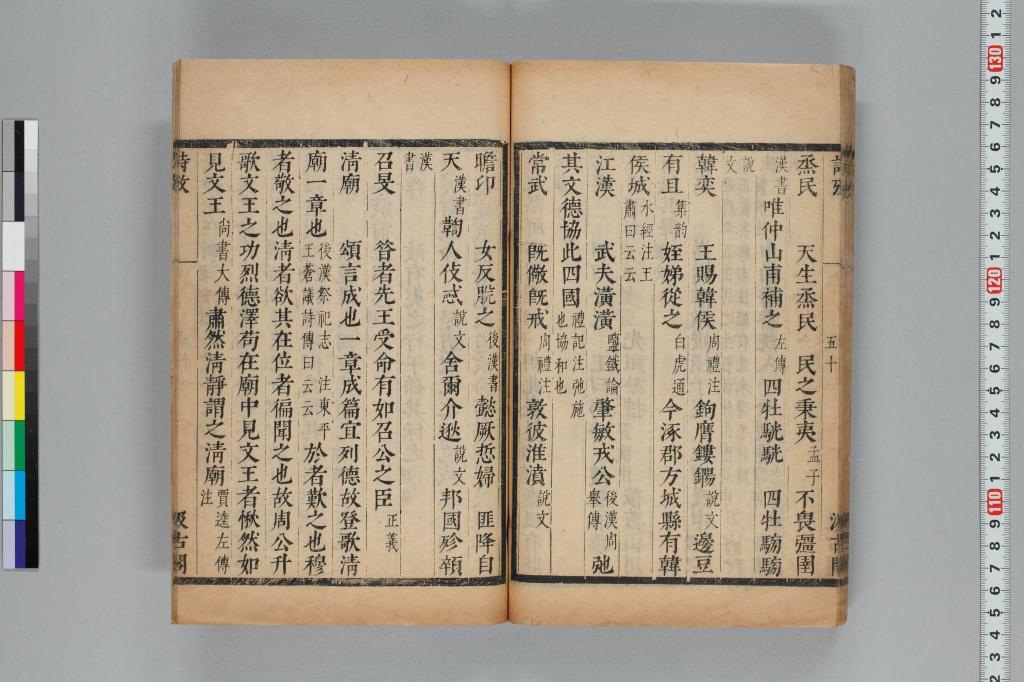 五十
烝民　天生烝民　民之秉夷孟子不畏彊圉
漢書唯仲山甫補之左傳四牡駫駫　四牡騯騯
說文
韓奕　王賜韓侯周禮注鉤膺鏤鍚說文邊豆
有且集韵姪娣從之白虎通今涿郡方城縣有韓
侯城水經注王肅曰云云
江漢　武夫潢潢鹽鐵論肇敏戎公後漢周舉傳弛
其文德協此四國禮記注弛施也協和也
常武　旣儆旣戒周禮注敦彼淮濆說文
瞻卬　女反脫之後漢書懿厥悊婦　匪降自
天漢書鞫人伎忒說文舍爾介逖說文邦國殄顇
漢書
召旻　昝者先王受命有如召公之臣正義
清廟　頌言成也一章成篇宜列德故登歌清
廟一章也後漢祭祀志注東平王蒼議詩傳曰云云於者歎之也穆
者敬之也淸者欲其在位者徧聞之也故周公升
歌文王之功烈德澤苟在廟中見文王者愀然如
見文王尙書大傳肅然淸靜謂之淸廟賈逵左傳注
詩攷
汲古閣